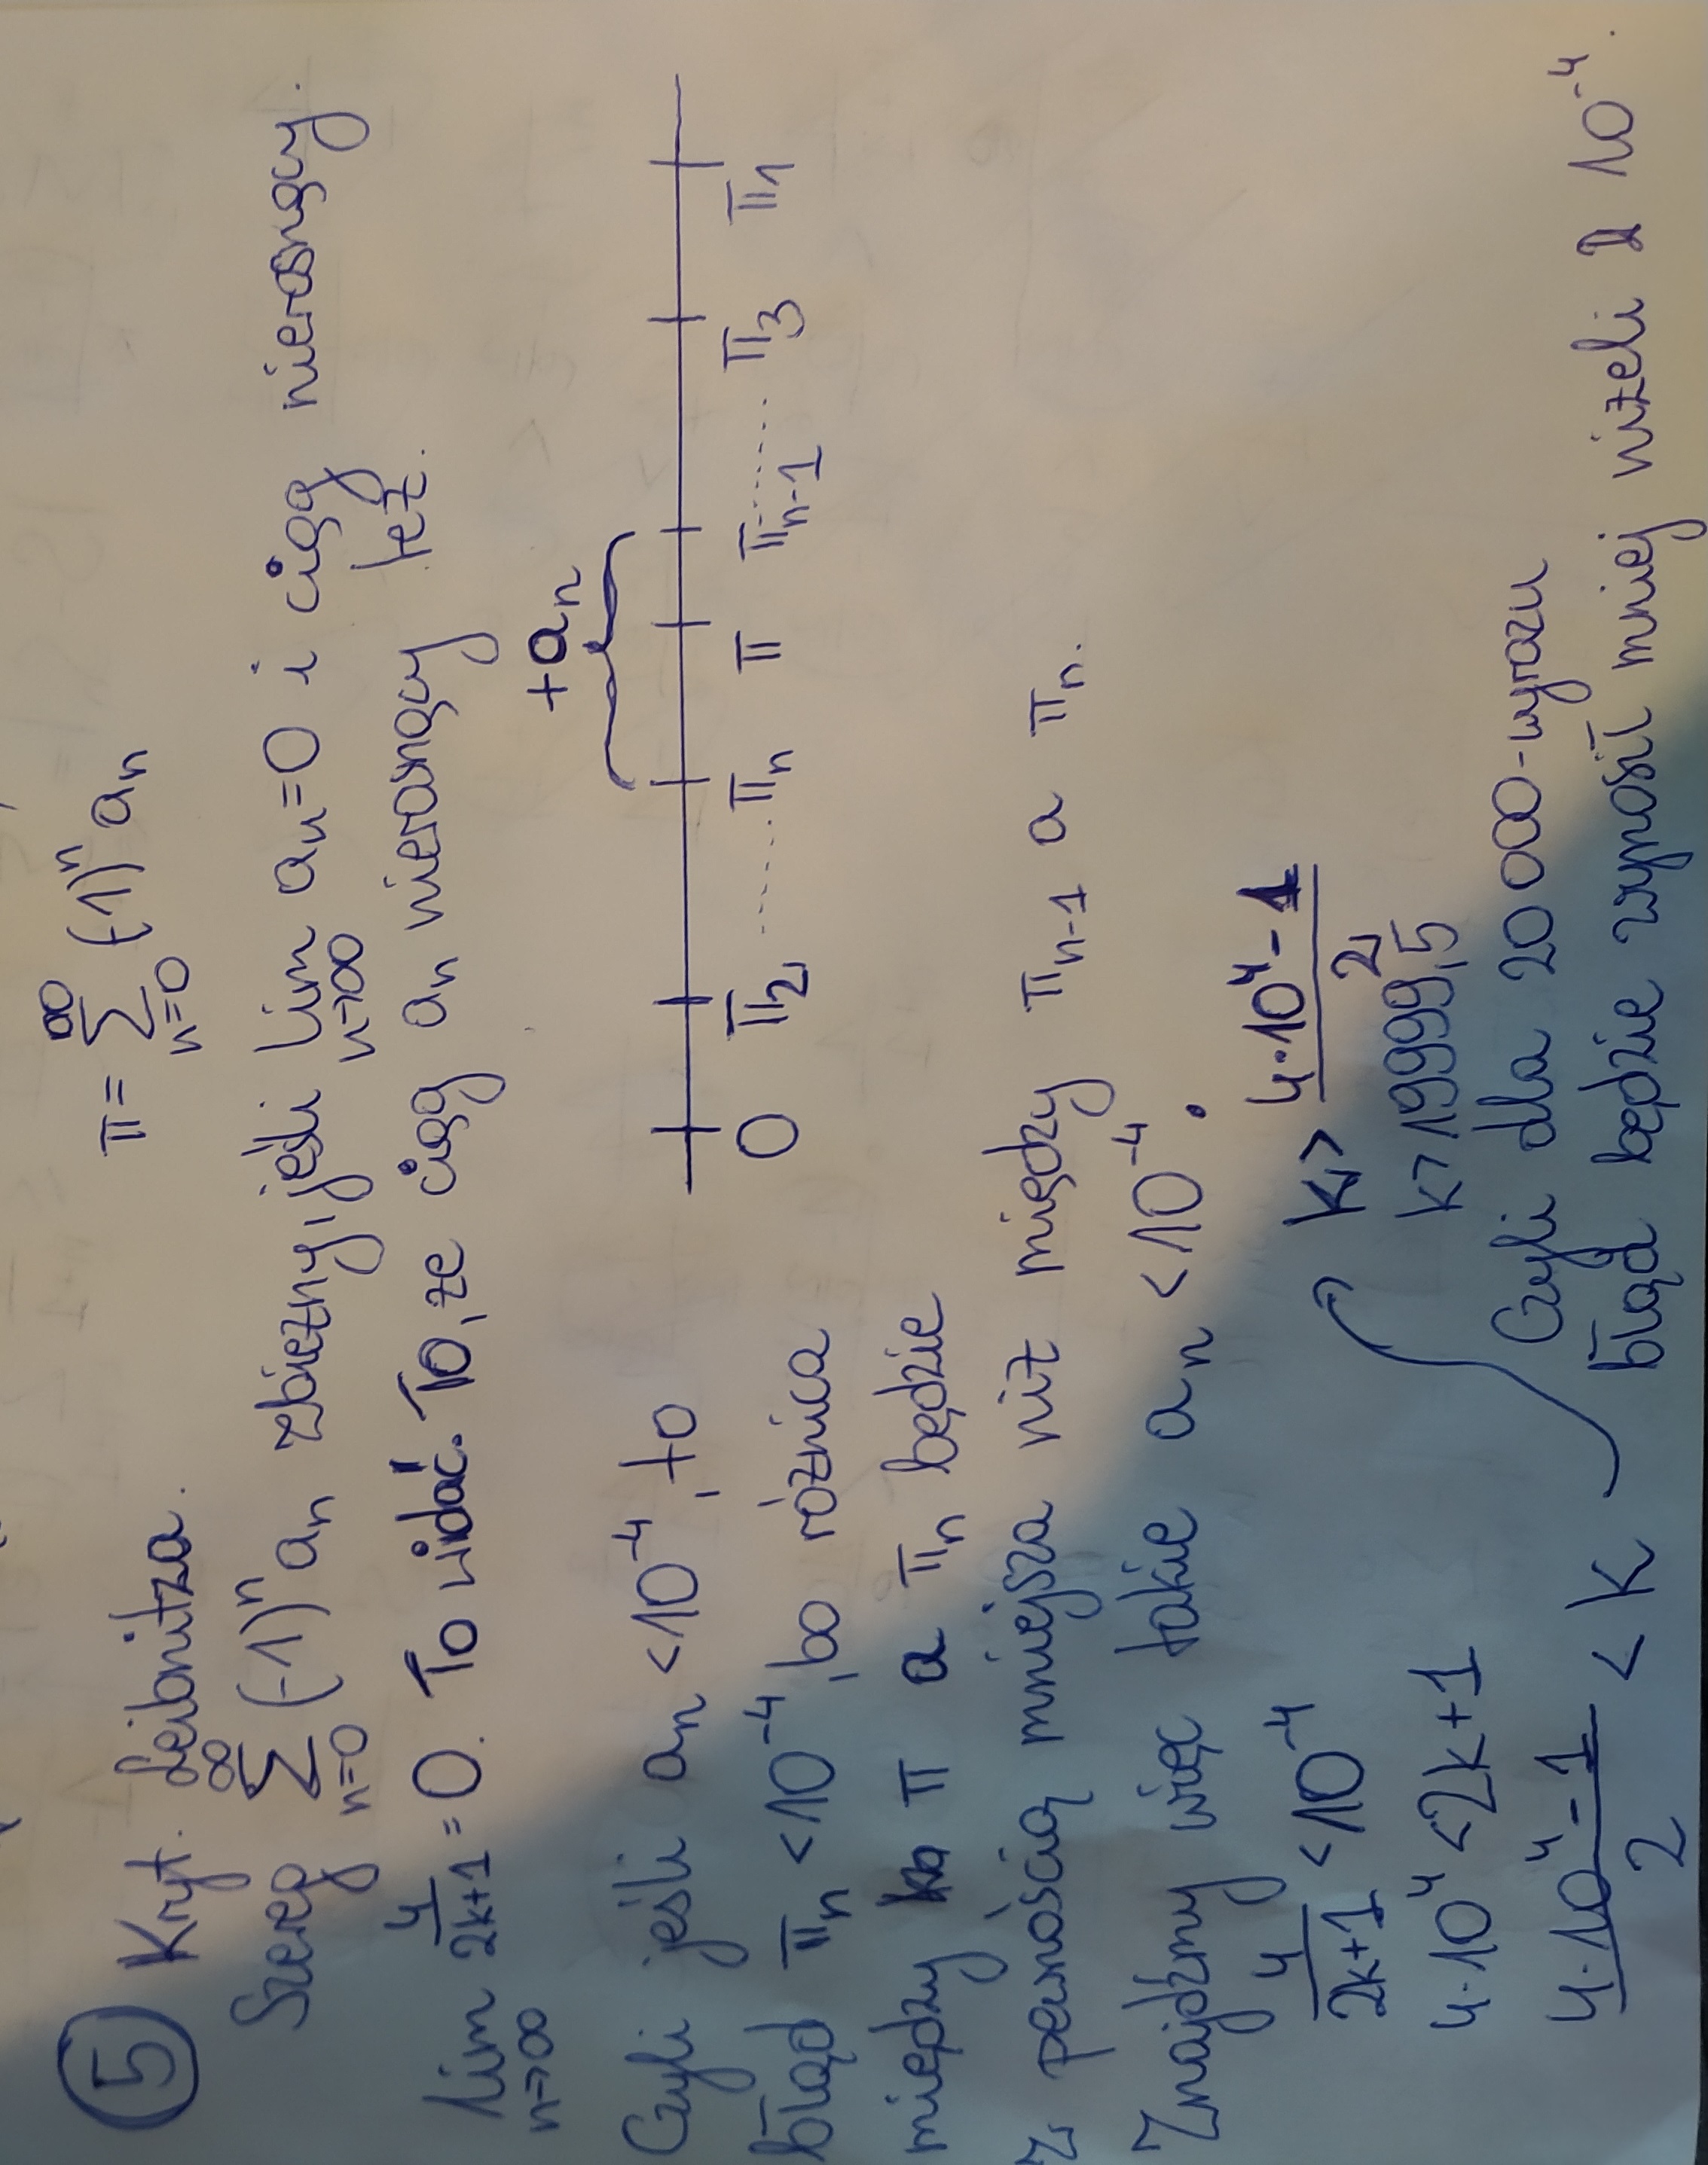 ⑤ Kryt. Leibnitza. π = ∑_{n=0}^{∞} (-1)^n a_n
Szereg ∑_{n=0}^{∞} (-1)^n a_n zbieżny, jeśli lim_{n→∞} a_n = 0 i ciąg nierosnący.
lim_{n→∞} 4/(2k+1) = 0. To widać. To, że ciąg a_n nierosnący też.
+a_n
0 π_2 ...... π_n π π_{n-1} ...... π_3 π_1
Czyli jeśli a_n < 10^{-4}, to
błąd π_n < 10^{-4}, bo różnica
między π a π_n będzie
z pewnością mniejsza niż między π_{n-1} a π_n.
Znajdźmy więc takie a_n < 10^{-4}.
4/(2k+1) < 10^{-4}
4·10^4 < 2k+1
(4·10^4 - 1)/2 < k
k > (4·10^4 - 1)/2
k > 19999,5
Czyli dla 20 000-wyrazu
błąd będzie wynosił mniej niżeli 10^{-4}.